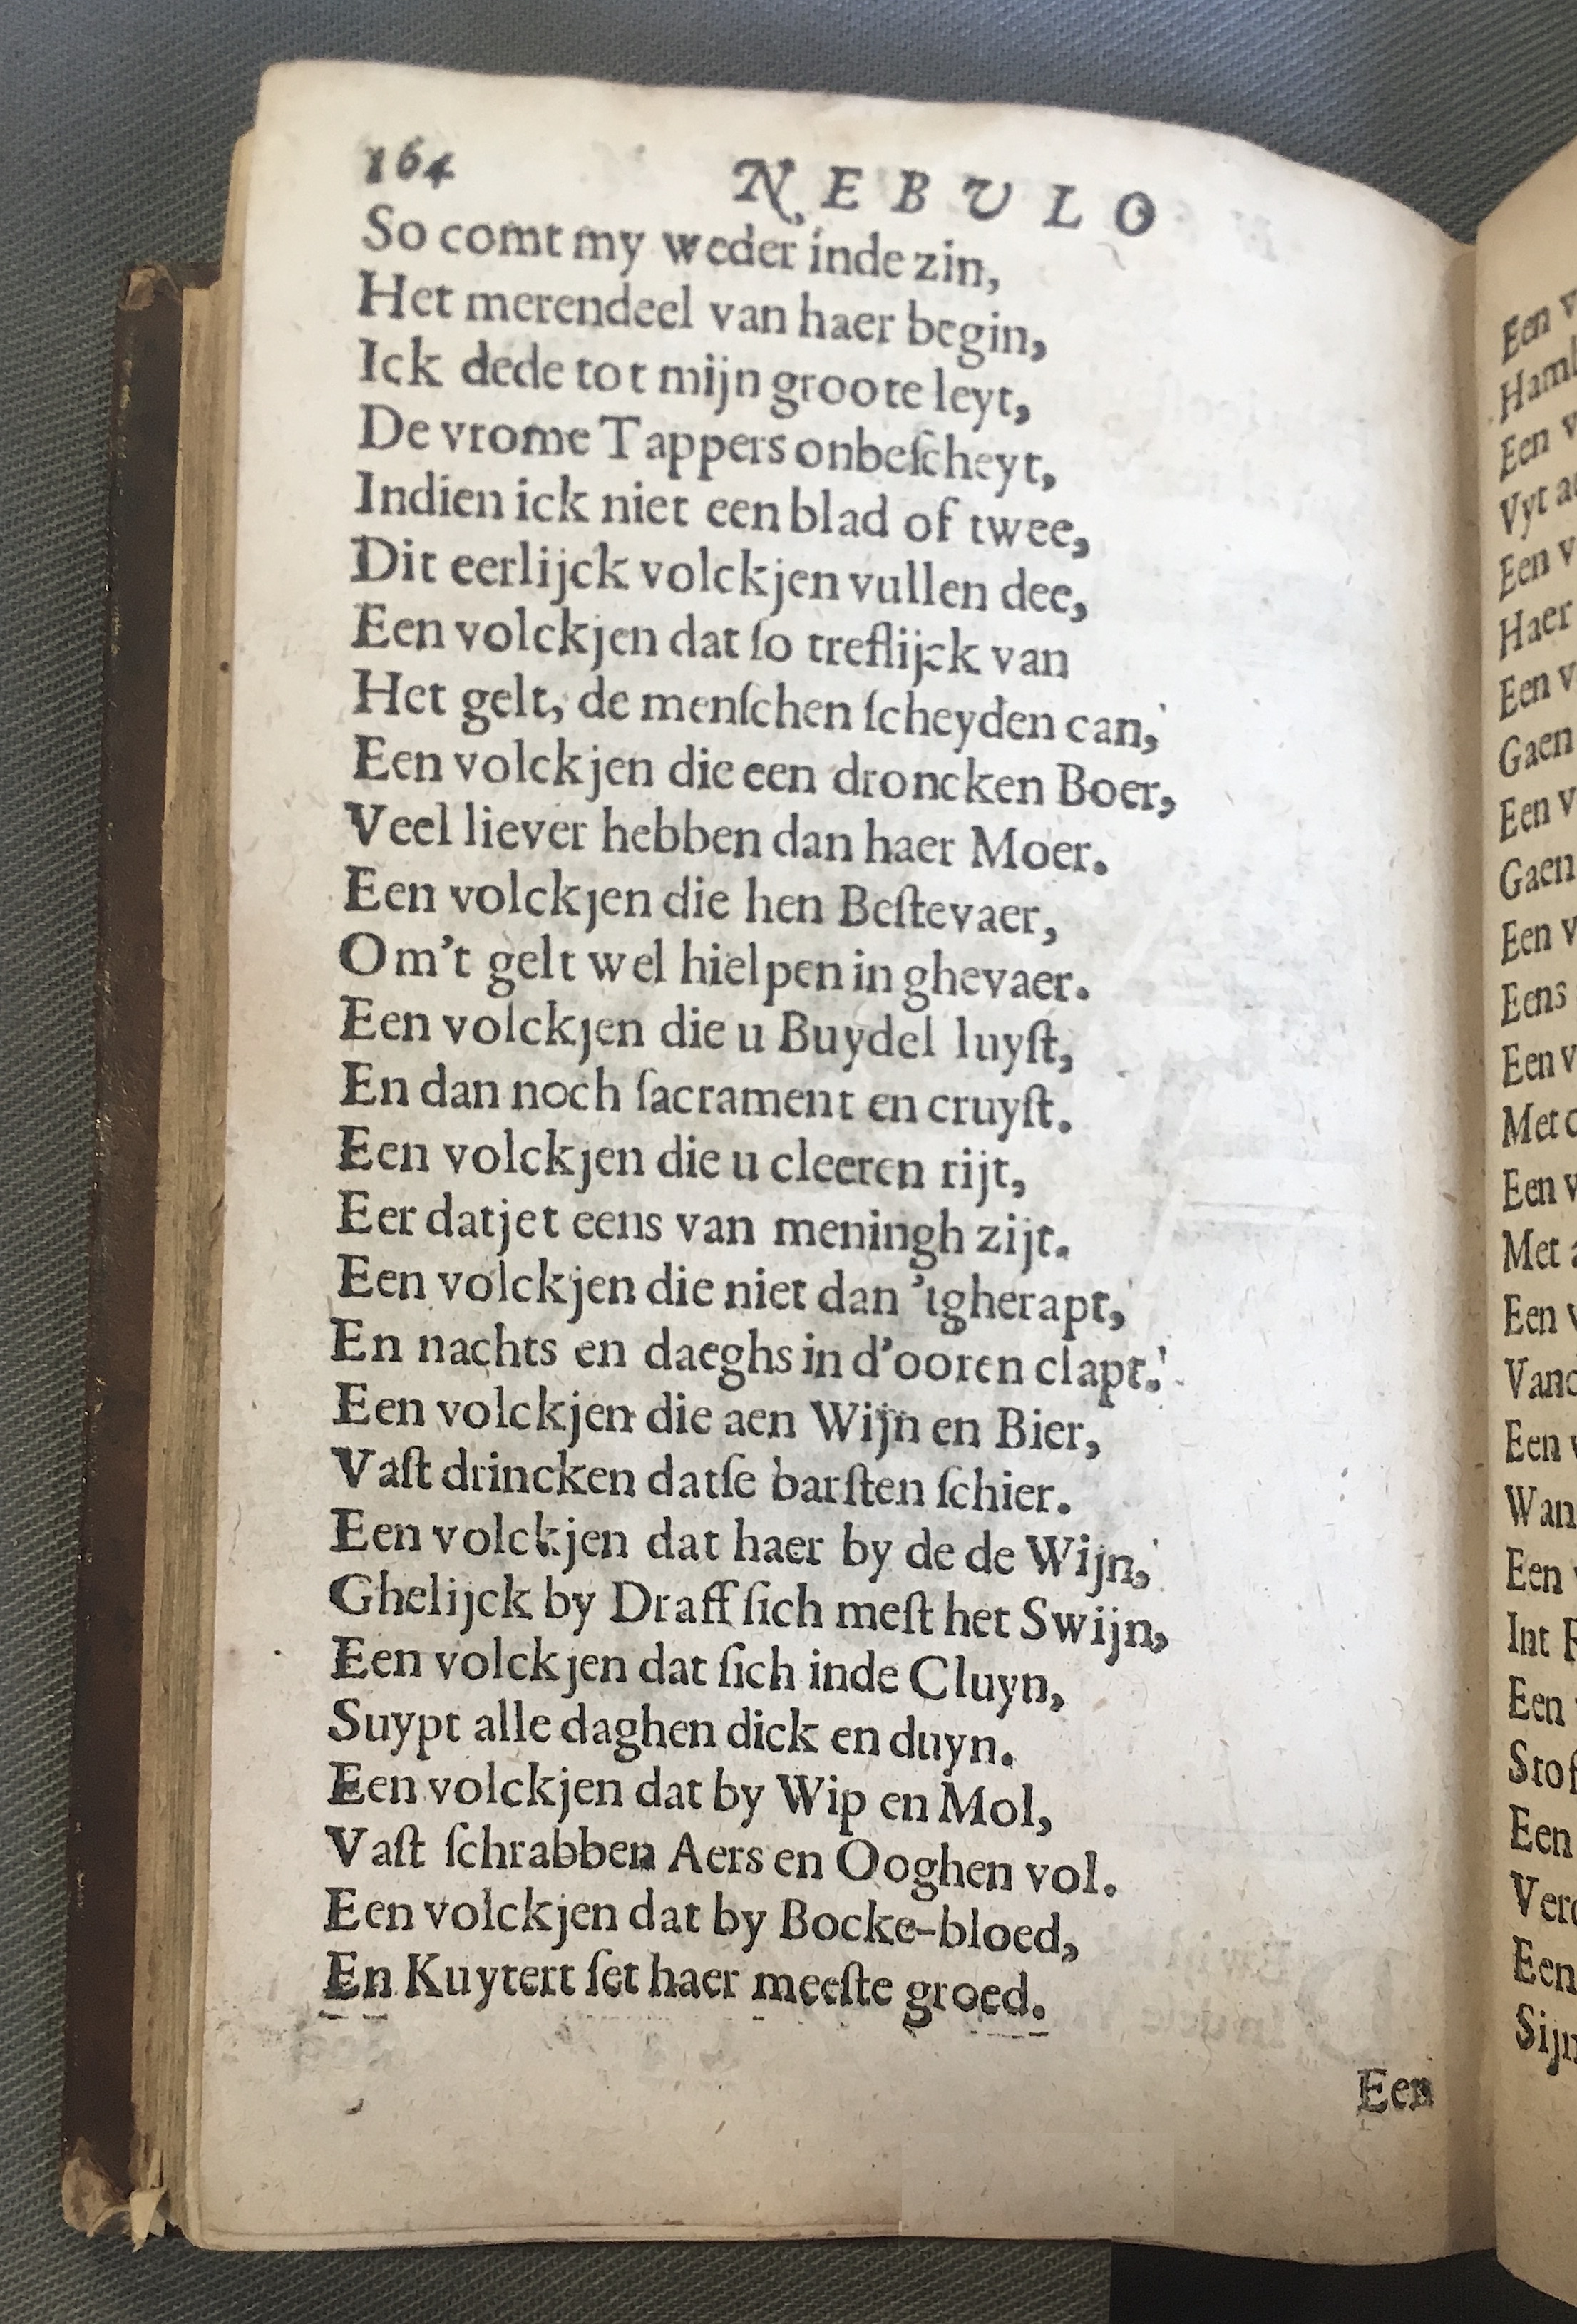 164
NEBULO
So comt my weder inde zin,
Het merendeel van haer begin,
Ick dede tot mijn groote leyt,
De vrome Tappers onbeſcheyt,
Indien ick niet een blad of twee,
Dit eerlijck volckjen vullen dee,
Een volckjen dat ſo treflijck van
Het gelt, de menſchen ſcheyden can,
Een volckjen die een droncken Boer,
Veel liever hebben dan haer Moer.
Een volckjen die hen Beſtevaer,
Om't gelt wel hielpen in ghevaer.
Een volckjen die u Buydel luyſt,
En dan noch ſacrament en cruyſt.
Een volckjen die u cleeren rijt,
Eer datjet eens van meningh zijt.
Een volckjen die niet dan 'tgherapt,
En nachts en daeghs in d'ooren clapt.
Een volckjen die aen Wijn en Bier,
Vaſt drincken datſe barſten ſchier.
Een volckjen dat haer by de de Wijn,
Ghelijck by Draff ſich meſt het Swijn,
Een volckjen dat ſich inde Cluyn,
Suypt alle daghen dick en duyn.
Een volckjen dat by Wip en Mol,
Vaſt ſchrabben Aers en Ooghen vol.
Een volckjen dat by Bocke-bloed,
En Kuytert ſet haer meeſte groed.
Een
Een
Een
Een
Haer
Een
Gaen
Een
Gaen
Een
Eens
Een
Met
Een
Met
Een
Een
Een
Int
Een
Een
Een